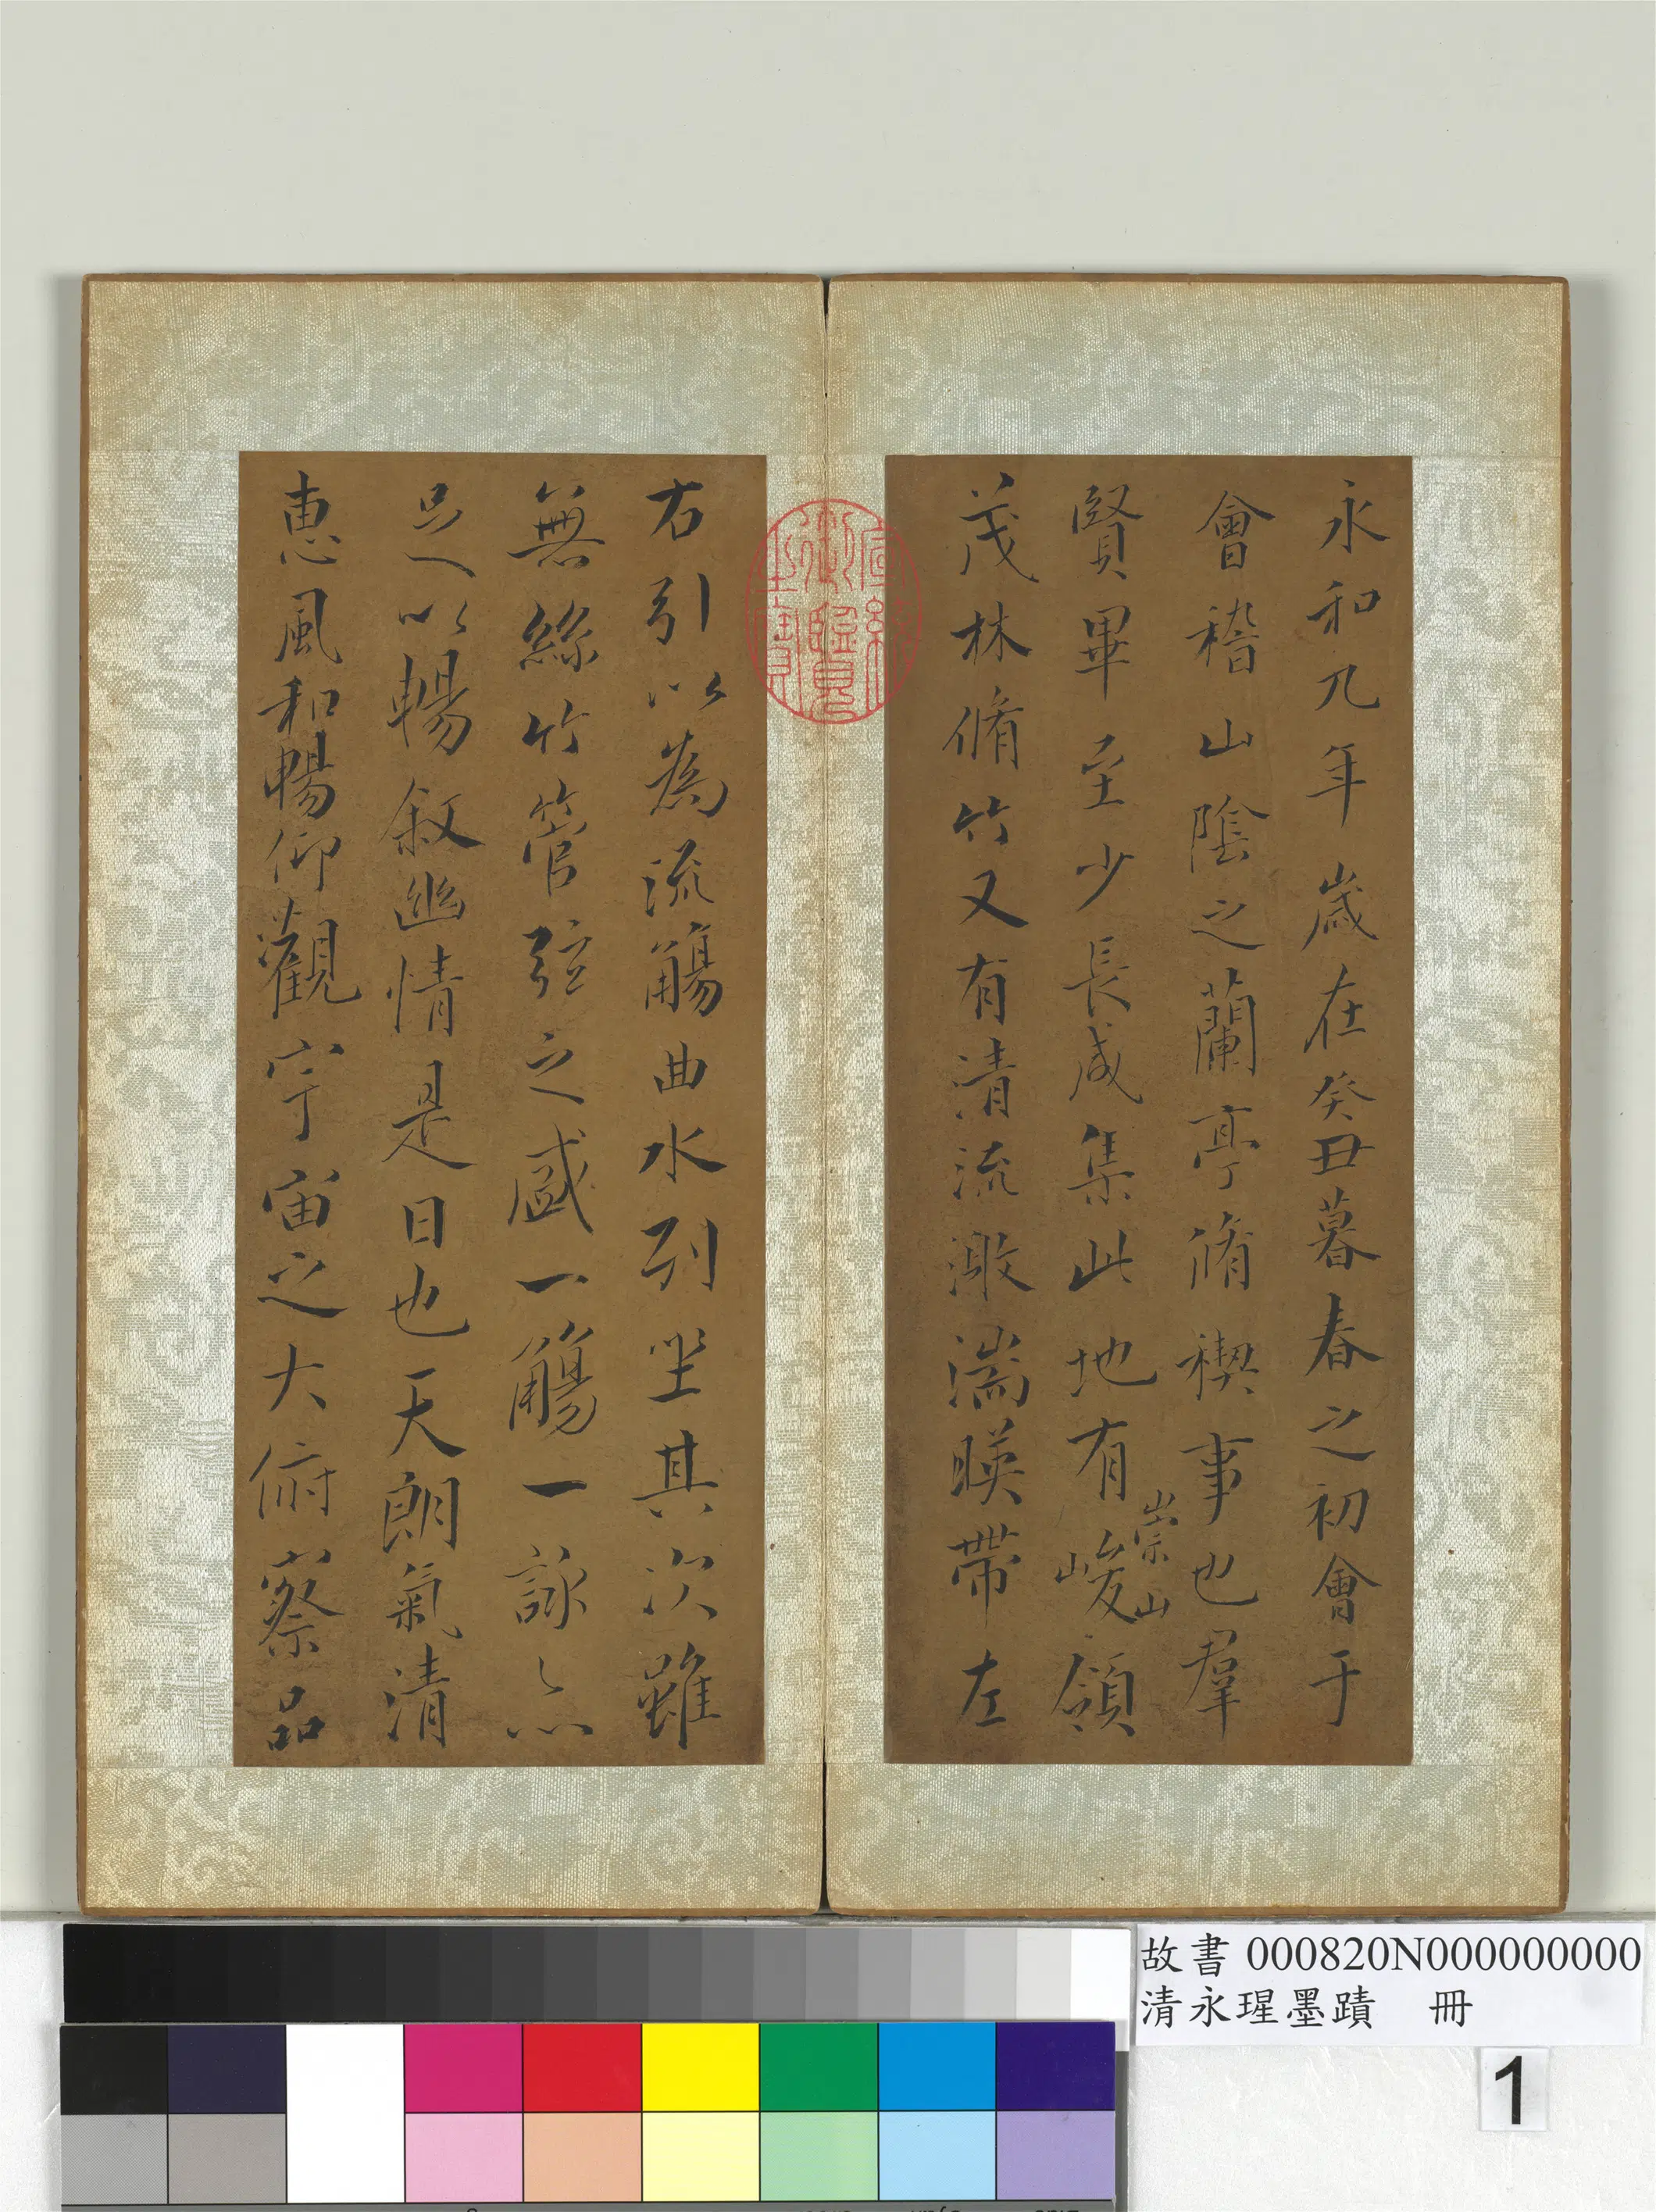 永和九年歲在癸丑暮春之初會于
會稽山陰之蘭亭脩禊事也羣
賢畢至少長咸集此地有崇山峻領
茂林脩竹又有清流激湍暎帶左
右引以為流觴曲水列坐其次雖
無絲竹管弦之盛一觴一詠亦
足以暢敘幽情是日也天朗氣清
惠風和暢仰觀宇宙之大俯察品
宣統御覽之寶
故書 000820N000000000
清永瑆墨蹟 冊
1